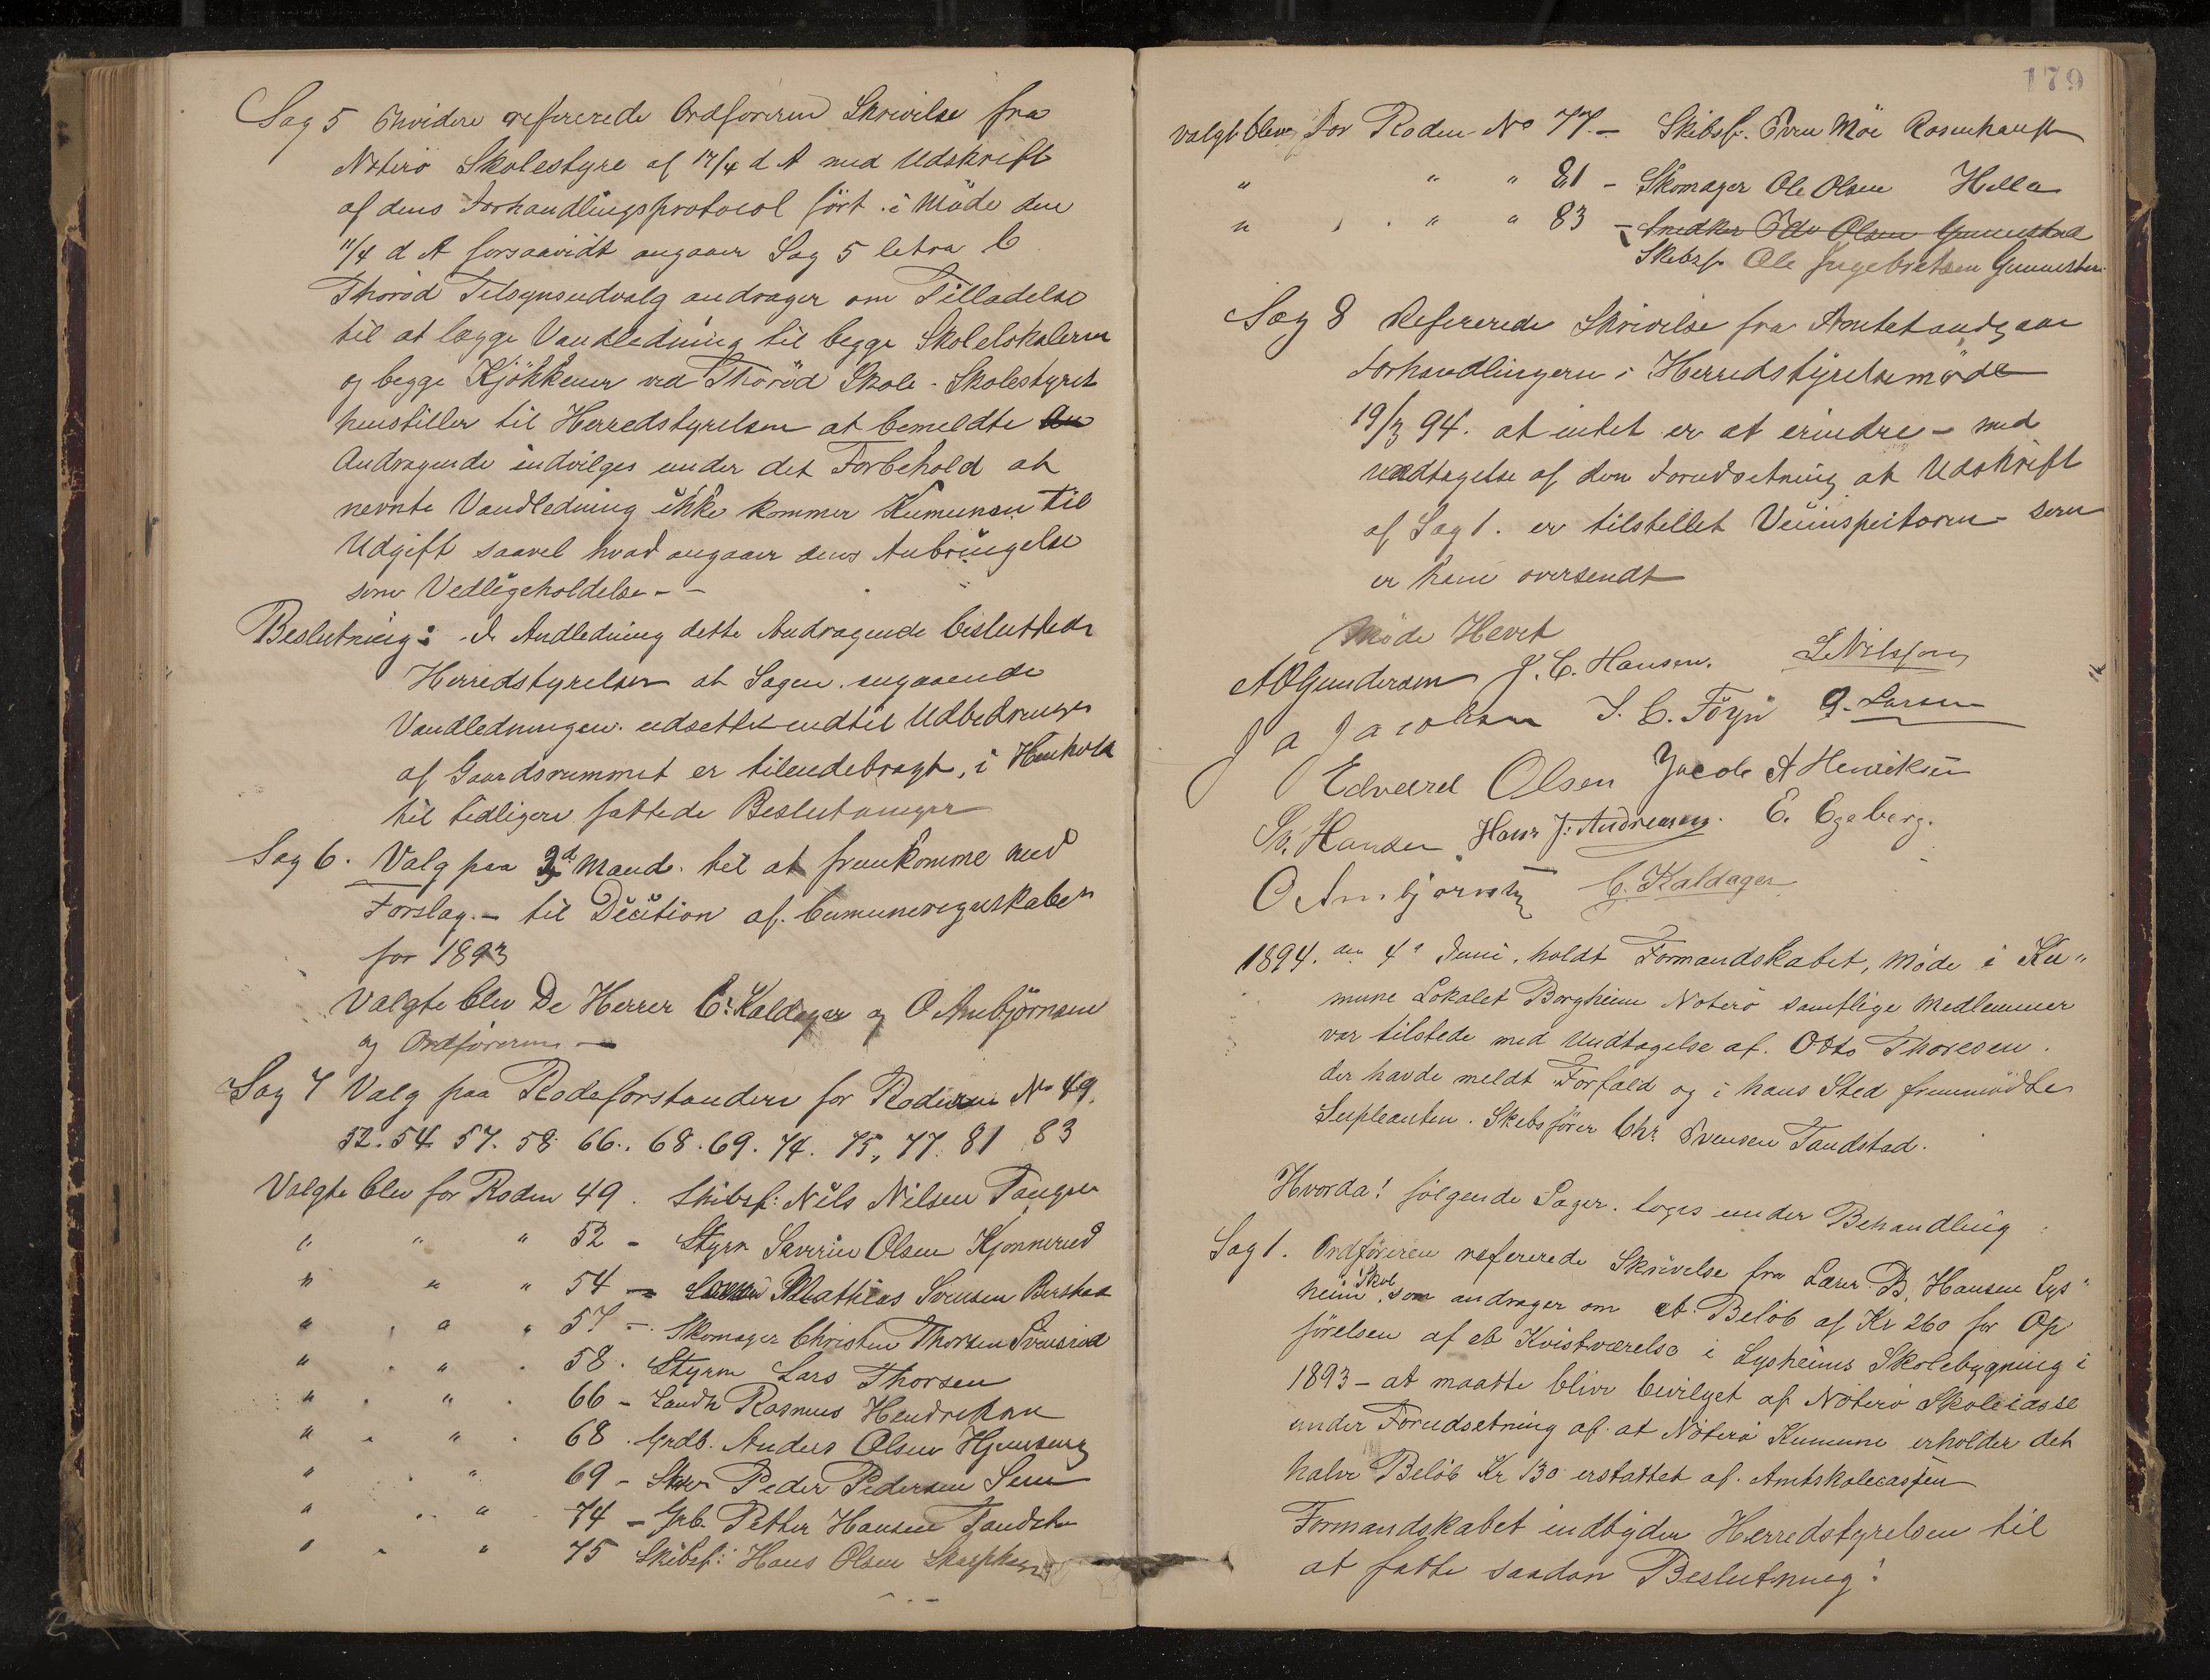 Sag 5 Envidere refererede Ordföreren Skrivelse fra
Nöterö Skolestyre af 17/4 d A med Udskrift
af dens Forhandlingsprotocol fört i Möde den
11/4 d A forsaavidt angaaer Sag 5 letra C
Thoröd Tilsynsudvalg andrager om Tilladelse
til at lægge Vandledning til begge Skolelokalerne
og begge Kjökkener ved Thoröd Skole - Skolestyret
henstiller til Herredstyrelsen at bemeldte An
Andragende indvilges under det Forbehold at
nevnte Vandledning ikke kommer Kumunen til
Udgift saavel hvad angaaer dens Anbringelse
som Vedligeholdelse - -
Beslutning: I Andledning dette Andragende besluttede
Herredstyrelsen at Sagen angaaende
Vandledningen udsettes indtil Udbedringen
af Gaardsrummet er tilendebragt, i Henhold
til tidligere fattede Beslutninger
Sag 6. Valg paa 3d Mand til at fremkomme med
Forslag - til Decition af Cumuneregnskabet
for 1893
Valgte blev De Herrer C. Kaldager og O Ambjörnsen
og Ordföreren —
Sag 7 Valg paa Rodeforstandere for Roderne No 49.
52. 54 57. 58 66. 68. 69. 74. 75, 77. 81 83
Valgte blev for Roden 49. Skibsf: Nils Nilsen Tangen
" " " 52 - Styrm Severin Olsen Kjonnerud
" " " 54 - Mathias Svensen Berstad
" " " 57 - Skomager Christen Thorsen
" " " 58. Styrm Lars Thorsen
" " " 66 - Landh Rasmus Hendriksen
" " " 68. Grdb. Anders Olsen
" " " 69 - Peder Pedersen Sem
" " " 74 - Grb. Petter Hansen
" " " 75 Skibsf: Hans Olsen
179
valgt blev for Roden No 77. - Skibsf. Sven Möe
" " " 81 - Skomager Ole Olsen Hella
" " " 83 - Snedker Edv Olsen Gunnestad
Skibsf. Ole Ingebretsen
Sag 8 Refererede Skrivelse fra Amtet andgaar
Forhandlingerne i Herredstyrelsemöde
19/3 94. at intet er at erindre - med
undtagelse af den Forudsetning at Udskrift
af Sag 1. er tilstillet Veiinspectoren - som
er ham oversendt
Möde Hevet
A O Gundersen J. C. Hansen. L Nilssen
J A Jacobsen I. C. Föyn G. Larsen
Edvard Olsen Jacob A Henriksen
Hansen Hans J. Andreasen. E. Egeberg.
O Ambjörnsen C. Kaldager
1894. den 4de Juni holdt Formandskabet, Möde i Ku"
mune Lokalet Borgheim Nöterö samtlige Medlemmer
var tilstede med Undtagelse af Otto Thoresen.
der havde meldt Forfald og i hans Sted fremmödte
Supleanten. Skibsförer Chr Svensen Tandstad.
Hvorda! fölgende Sager toges under Behandling:
Sag 1. Ordföreren refererede Skrivelse fra Lærer B. Hansen Lys"
heim Skol som andrager om et Belöb af Kr 260 for Op
förelsen af et Kvistværelse i Lysheims Skolebygning i
1893 - at maatte blive bevilget af Nöterö Skolecasse
under Forudsetning af at Nöterö Kumune erholder det
halve Belöb Kr 130 erstattet af Amtskolecassen
Formandskabet indbyder Herredstyrelsen til
at fatte saadan Beslutning: